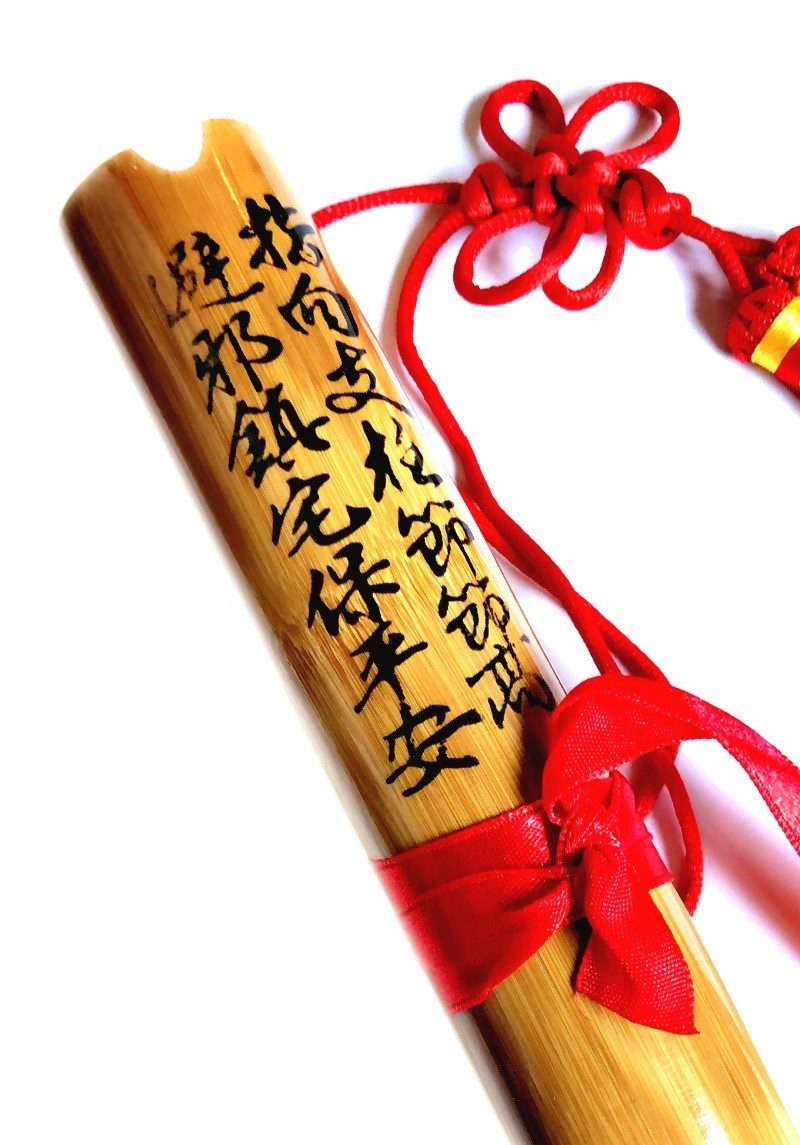 指向支柱節節高
避邪鎮宅保平安